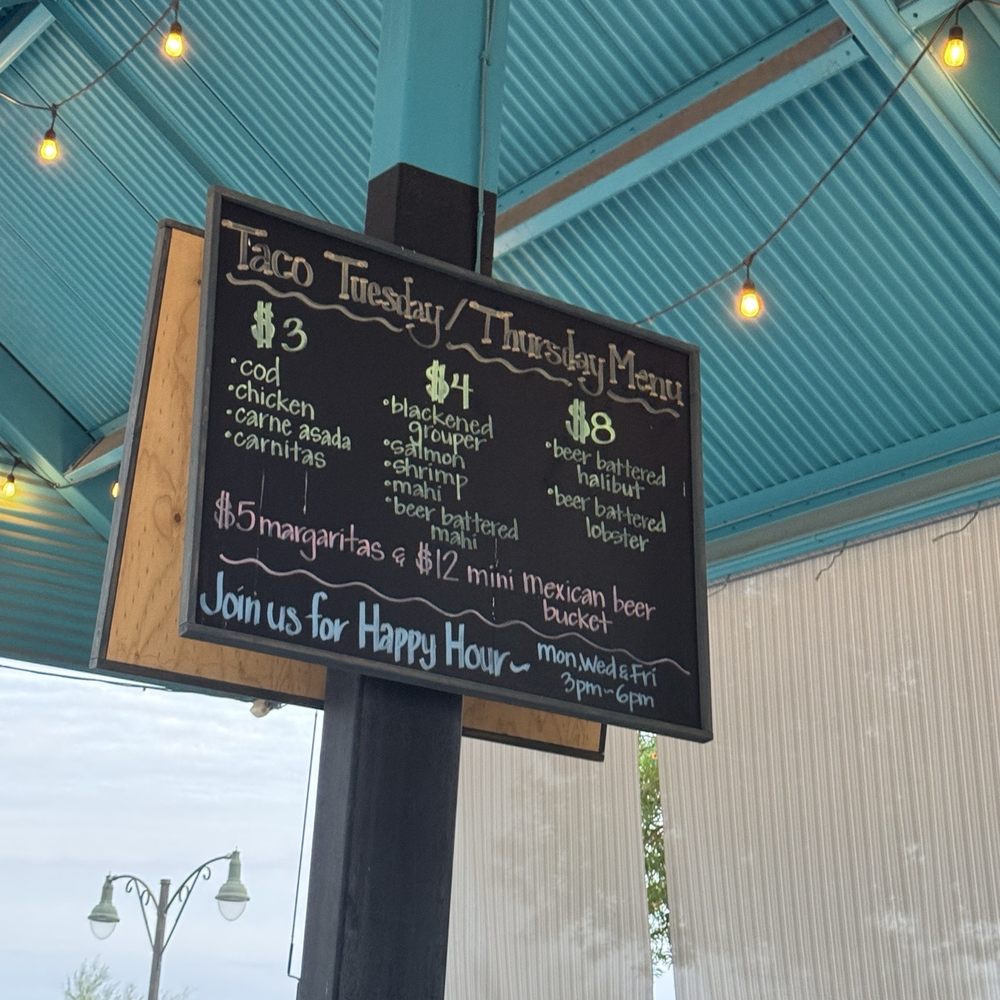 Taco Tuesday/Thursday Menu
$3
•cod
•chicken
•carne asada
•carnitas
$4
•blackened
grouper
•salmon
•shrimp
•mahi
•beer battered
mahi
$8
•beer battered
halibut
•beer battered
lobster
$5 margaritas & $12 mini mexican beer
bucket
Join us for Happy Hour~
mon, Wed & Fri
3pm-6pm